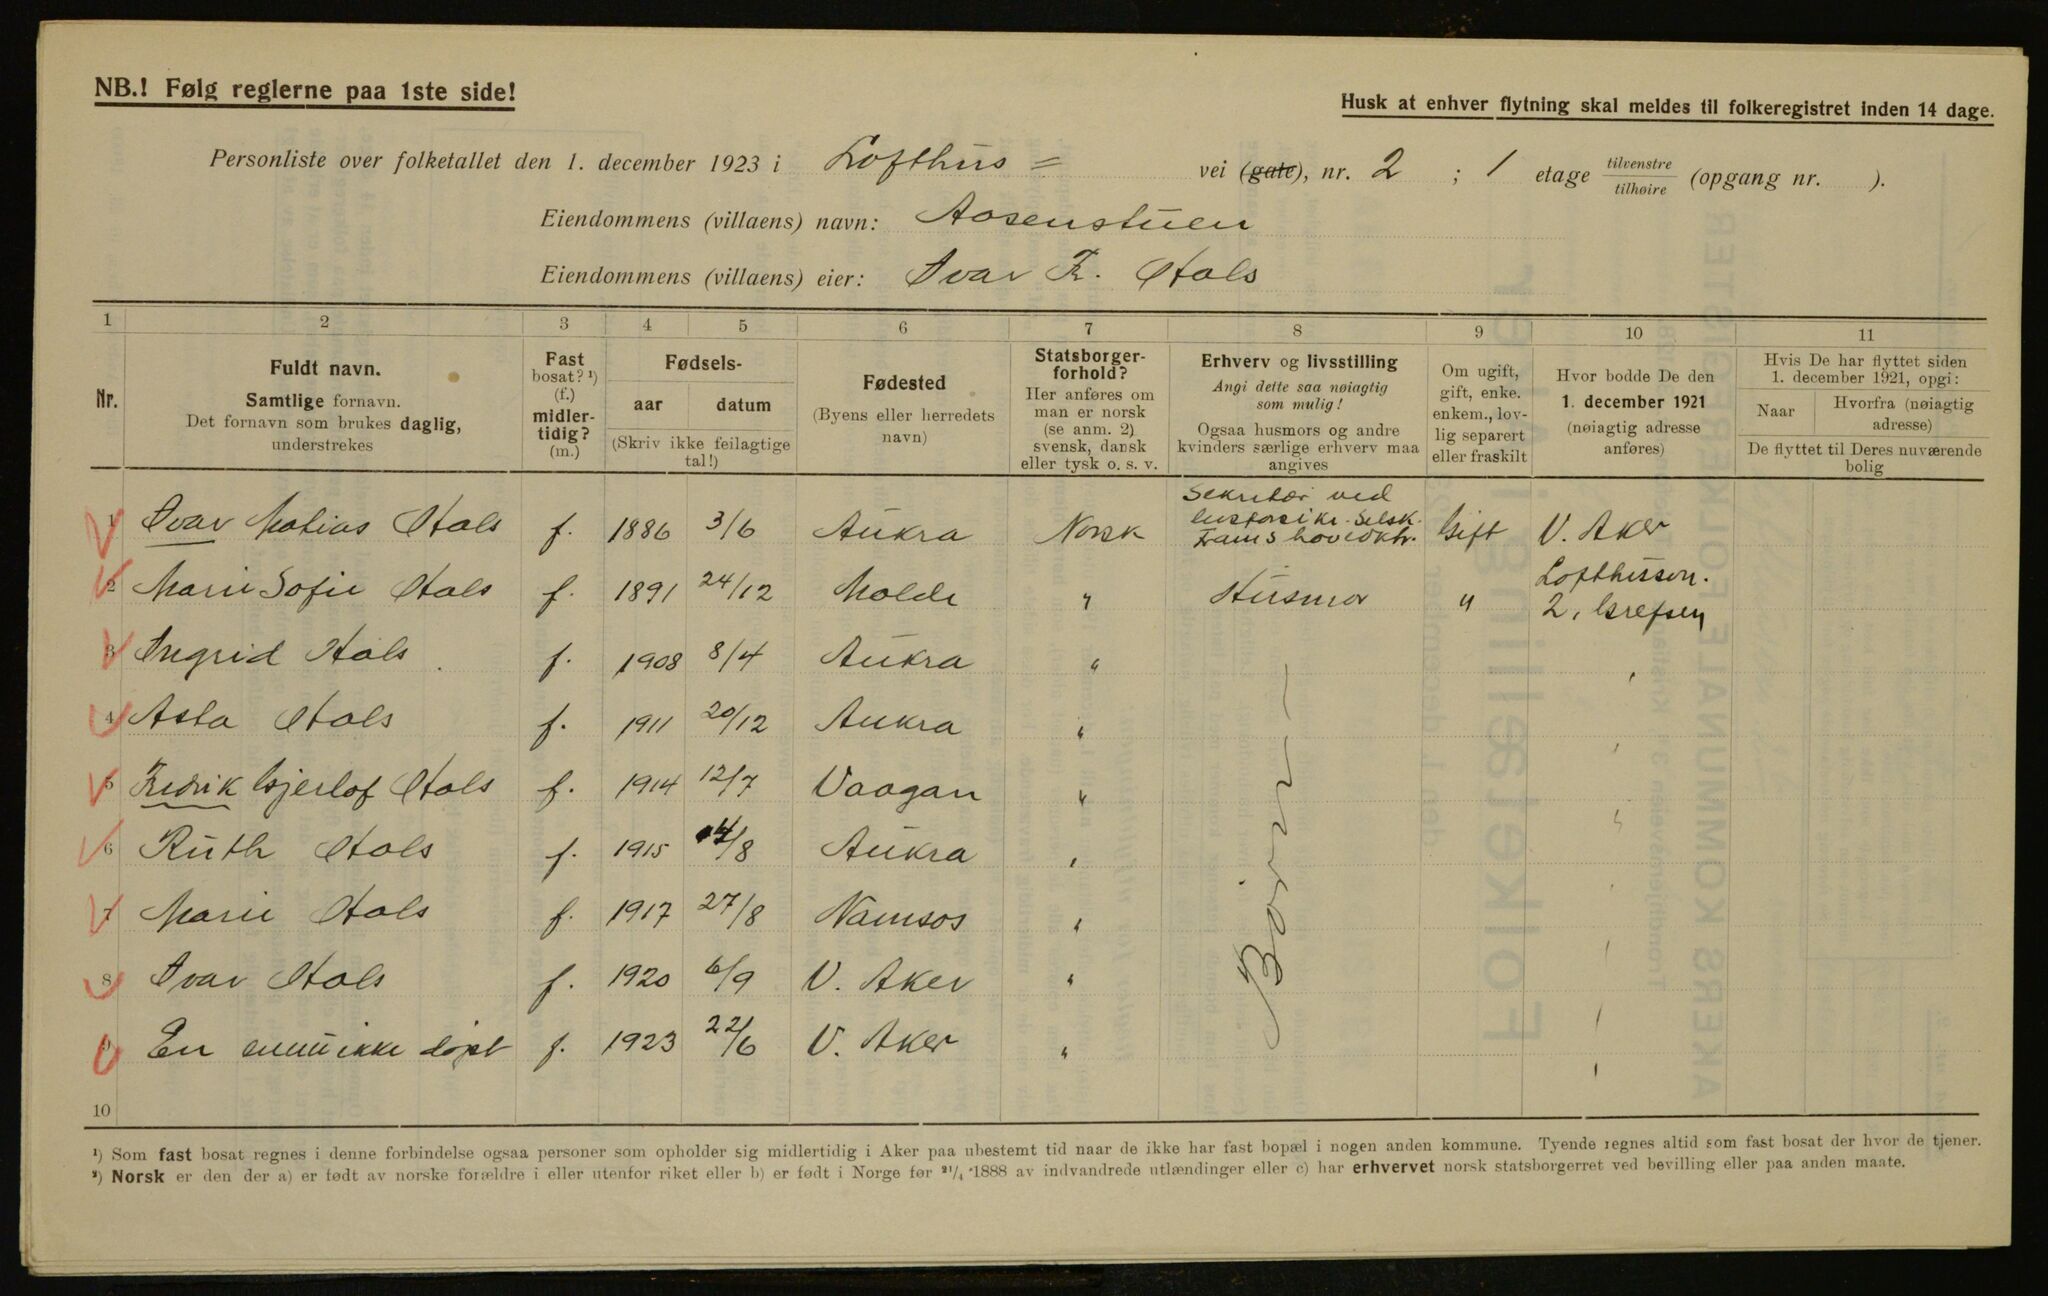 NB.! Følg reglerne paa 1ste side!
Husk at enhver flytning skal meldes til folkeregistret inden 14 dage.
Personliste over folketallet den 1. december 1923 i Lofthus = vei (gate), nr. 2 ; 1 etage tilvenstre tilhøire (opgang nr. ).
Eiendommens (villaens) navn: Aasenstuen
Eiendommens (villaens) eier: Ivar Fr. Hals
1 2 3 4 5 6 7 8 9 10 11
Nr.
Fuldt navn.
Samtlige fornavn.
Det fornavn som brukes daglig,
understrekes
Fast
bosat? ¹)
(f.)
midler-
tidig?
(m.)
Fødsels-
aar datum
(Skriv ikke feilagtige
tal!)
Fødested
(Byens eller herredets
navn)
Statsborger-
forhold?
Her anføres om
man er norsk
(se anm. 2)
svensk, dansk
eller tysk o. s. v.
Erhverv og livsstilling
Angi dette saa nøiagtig
som mulig!
Ogsaa husmors og andre
kvinders særlige erhverv maa
angives
Om ugift,
gift, enke.
enkem., lov-
lig separert
eller fraskilt
Hvor bodde De den
1. december 1921
(nøiagtig adresse
anføres)
Hvis De har flyttet siden
1. december 1921, opgi:
Naar Hvorfra (nøiagtig
adresse)
De flyttet til Deres nuværende
bolig
Sekretær ved
livsforsikr. Selsk.
1 Ivar Matias Hals f. 1886 3/6 Aukra Norsk Frams hovedktr. Gift V. Aker
2 Marie Sofie Hals f. 1891 24/12 Molde " Husmor " Lofthusvn.
2, Grefsen
3 Ingrid Hals f. 1908 8/4 Aukra " "
4 Asta Hals f. 1911 20/12 Aukra " "
5 Fredrik Gjerløf Hals f. 1914 12/7 Vaagan " "
6 Ruth Hals f. 1915 14/8 Aukra " "
7 Marie Hals f. 1917 27/8 Namsos " "
8 Ivar Hals f. 1920 6/9 V. Aker " "
9 En ennu ikke døpt f. 1923 22/6 V. Aker " "
Børn
10
¹) Som fast bosat regnes i denne forbindelse ogsaa personer som opholder sig midlertidig i Aker paa ubestemt tid naar de ikke har fast bopæl i nogen anden kommune. Tyende regnes altid som fast bosat der hvor de tjener.
²) Norsk er den der a) er født av norske forældre i eller utenfor riket eller b) er født i Norge før 21/4 1888 av indvandrede utlændinger eller c) har erhvervet norsk statsborgerret ved bevilling eller paa anden maate.